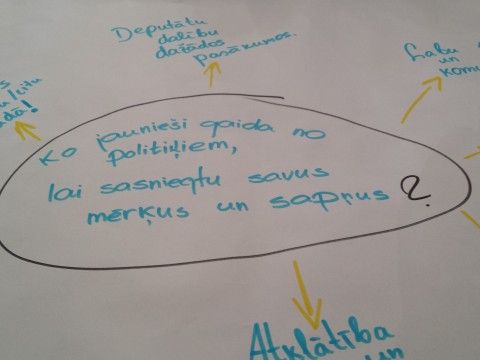 Deputātu
dalību
dažādos
pasākumos.
Labu
un
Ko jaunieši gaida no
politiķiem,
lai sasniegtu savus
mērķus un sapņus?
Atklātība
un